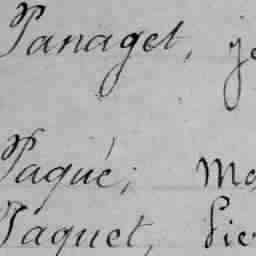 Panaget, je
Paqué; Ma
Paquet, Pier